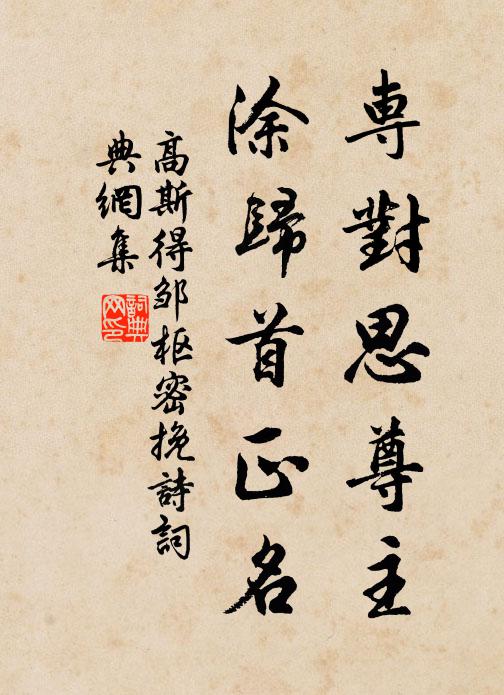 専對思尊主
涂歸首正名
高斯得邹枢密挽詩詞
典網集
詞典网印